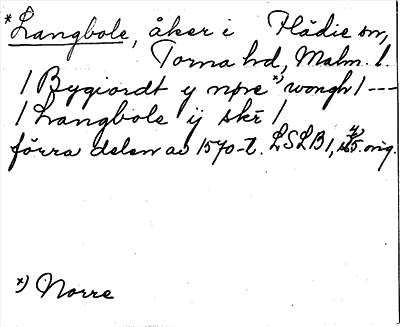 *Langbole, åker i Flädie sn,
Torna hd, Malm. l.
/ Bygiordt y nøre *) wongh / ---
/ Langbole ij skr̄ /
förra delen av 1570-t. LSLB1, 5. orig.
*) Norre